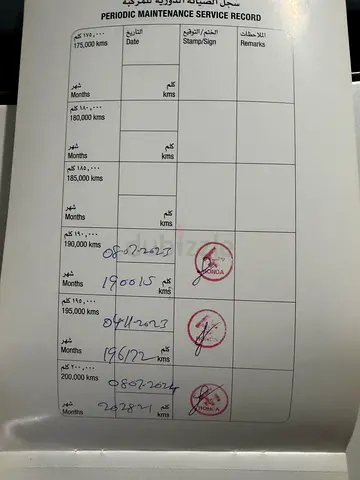 سجل الصيانة الدورية للمركبة
PERIODIC MAINTENANCE SERVICE RECORD
١٧٥,٠٠٠ كلم التاريخ الختم/التوقيع الملاحظات
175,000 kms Date Stamp/Sign Remarks
شهر كلم
Months kms
١٨٠,٠٠٠ كلم
180,000 kms
شهر كلم
Months kms
١٨٥,٠٠٠ كلم
185,000 kms
شهر كلم
Months kms
١٩٠,٠٠٠ كلم
190,000 kms 08-07-2023
شهر 190015 كلم
Months kms
١٩٥,٠٠٠ كلم
195,000 kms 04-11-2023
شهر 196172 كلم
Months kms
٢٠٠,٠٠٠ كلم
200,000 kms 08-07-2024
شهر 202821 كلم
Months kms